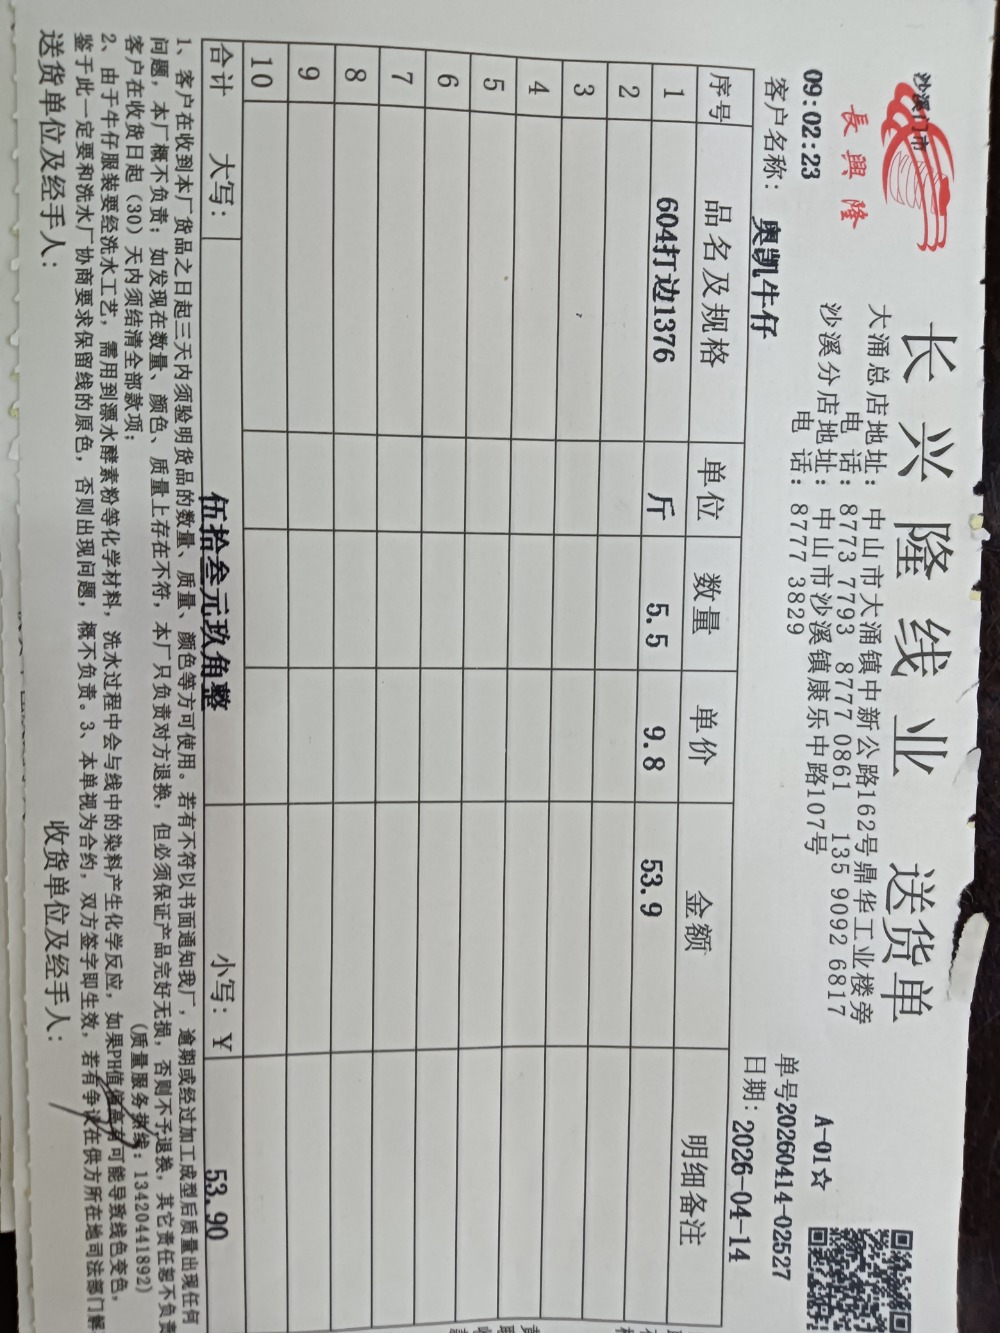 长兴隆线业 送货单
沙溪门市
長興隆
大涌总店地址：中山市大涌镇中新公路162号鼎华工业楼旁
电话：8773 7793 8777 0861 135 9092 6817
沙溪分店地址：中山市沙溪镇康乐中路107号
电话：8777 3829
A-01☆
09:02:23
单号20260414-02527
客户名称：奥凯牛仔
日期：2026-04-14
序号 品名及规格 单位 数量 单价 金额 明细备注
1 604打边1376 斤 5.5 9.8 53.9
2
3
4
5
6
7
8
9
10
合计 大写：伍拾叁元玖角整 小写：¥ 53.90
1、客户在收到本厂货品之日起三天内须验明货品的数量、质量、颜色等方可使用。若有不符以书面通知我厂，逾期或经过加工成型后质量出现任何
问题，本厂概不负责；如发现在数量、颜色、质量上存在不符，本厂只负责对方退换，但必须保证产品完好无损，否则不予退换，其它责任恕不负责
客户在收货日起（30）天内须结清全部款项；
(质量服务热线：13420441892)
2、由于牛仔服装要经洗水工艺，需用到漂水酵素粉等化学材料，洗水过程中会与线中的染料产生化学反应，如果PH值偏高有可能导致线色变色，
鉴于此一定要和洗水厂协商要求保留线的原色，否则出现问题，概不负责。3、本单视为合约，双方签字即生效，若有争议在供方所在地司法部门解
送货单位及经手人：
收货单位及经手人：